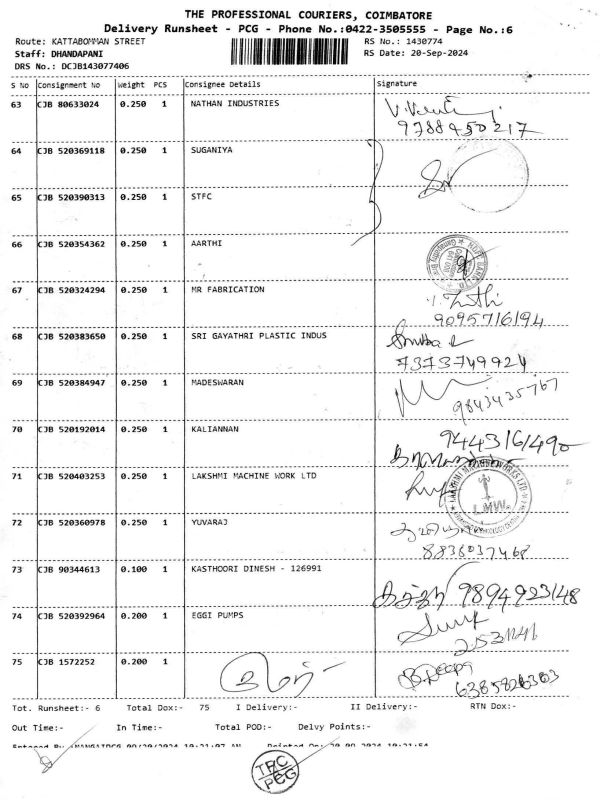 THE PROFESSIONAL COURIERS, COIMBATORE
Delivery Runsheet - PCG - Phone No.:0422-3505555 - Page No.:6
Route: KATTABOMMAN STREET RS No.: 1430774
Staff: DHANDAPANI RS Date: 20-Sep-2024
DRS No.: DCJB143077406
S No Consignment No Weight PCS Consignee Details Signature
63 CJB 80633024 0.250 1 NATHAN INDUSTRIES
9788450217
64 CJB 520369118 0.250 1 SUGANIYA
65 CJB 520390313 0.250 1 STFC
66 CJB 520354362 0.250 1 AARTHI
67 CJB 520324294 0.250 1 MR FABRICATION
9095716194
68 CJB 520383650 0.250 1 SRI GAYATHRI PLASTIC INDUS
7373749924
69 CJB 520384947 0.250 1 MADESWARAN
9843435767
70 CJB 520192014 0.250 1 KALIANNAN
9443161490
71 CJB 520403253 0.250 1 LAKSHMI MACHINE WORK LTD
LMW
72 CJB 520360978 0.250 1 YUVARAJ
8836037468
73 CJB 90344613 0.100 1 KASTHOORI DINESH - 126991
9894923148
74 CJB 520392964 0.200 1 EGGI PUMPS
2531141
75 CJB 1572252 0.200 1
6385826363
Tot. Runsheet:- 6 Total Dox:- 75 I Delivery:- II Delivery:- RTN Dox:-
Out Time:- In Time:- Total POD:- Delvy Points:-
TPC
PCG